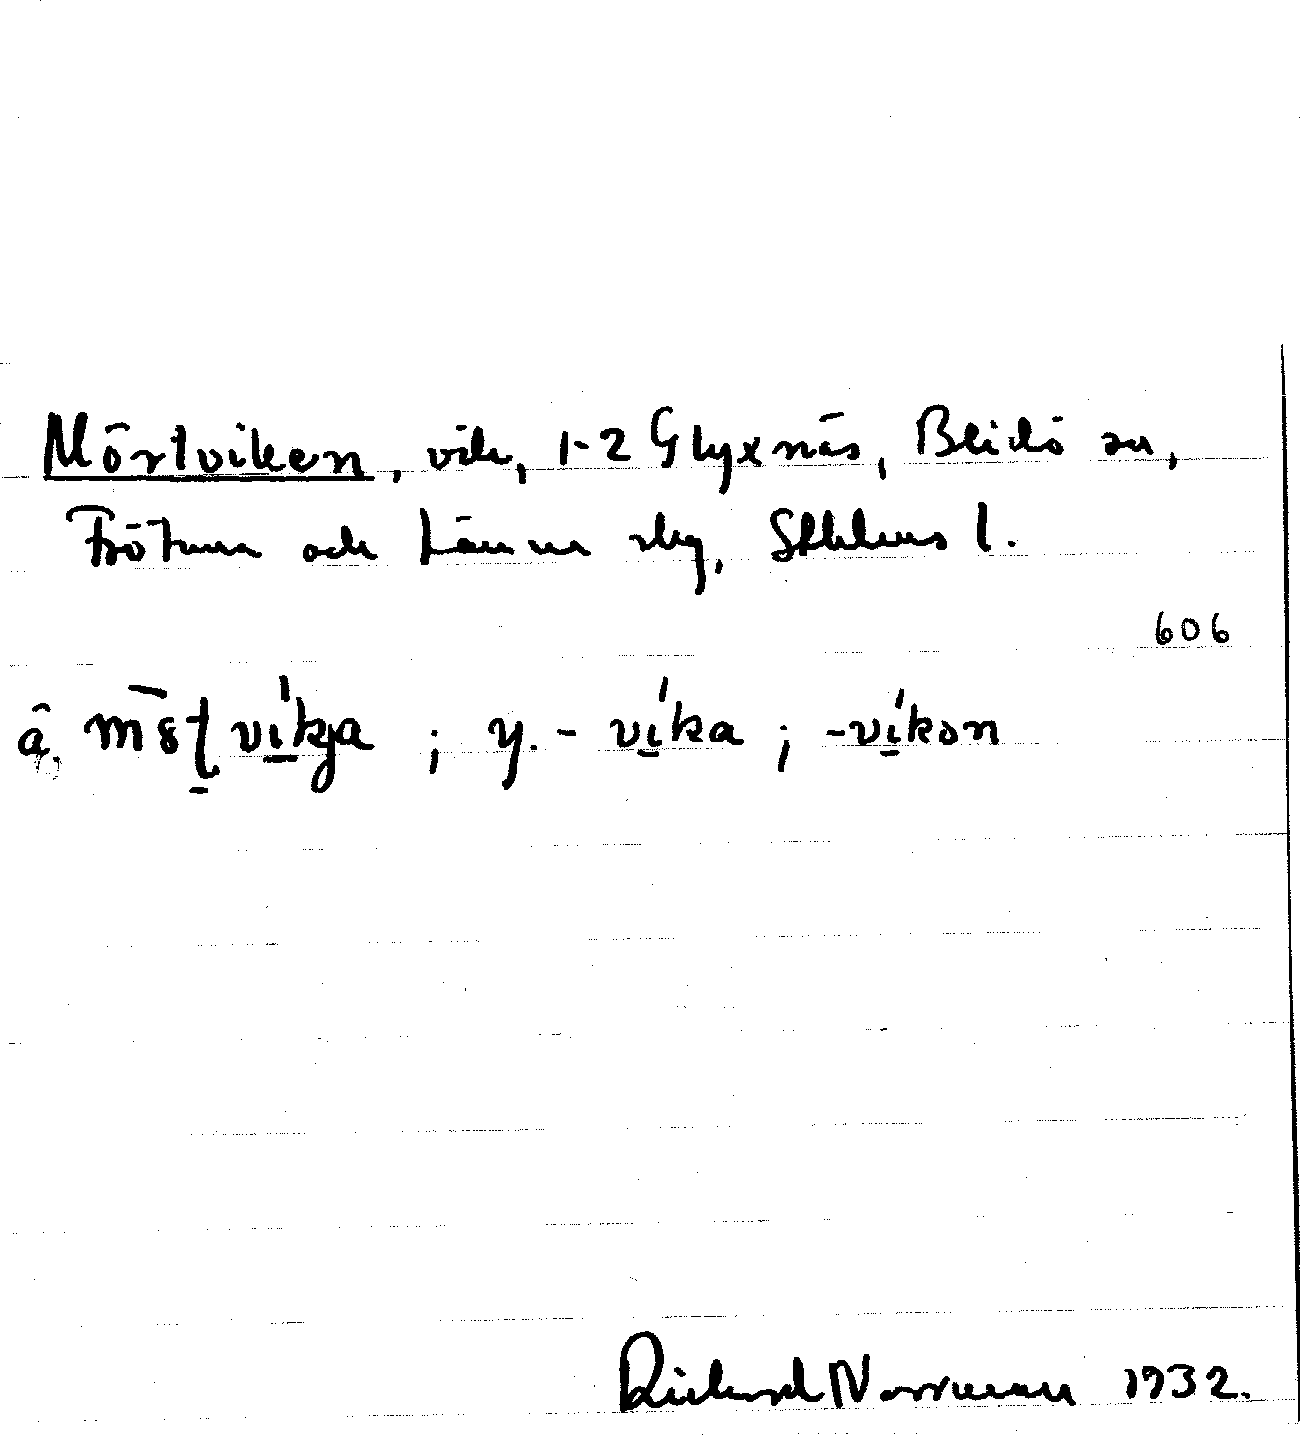 Mörtviken, vik, 1-2 Glyxnäs, Blidö sn,
Frötuna och Länna skg, Sthlms l.
606
ä. víkja ; y. - víka ; -víkən
Richard Norrman 1932.